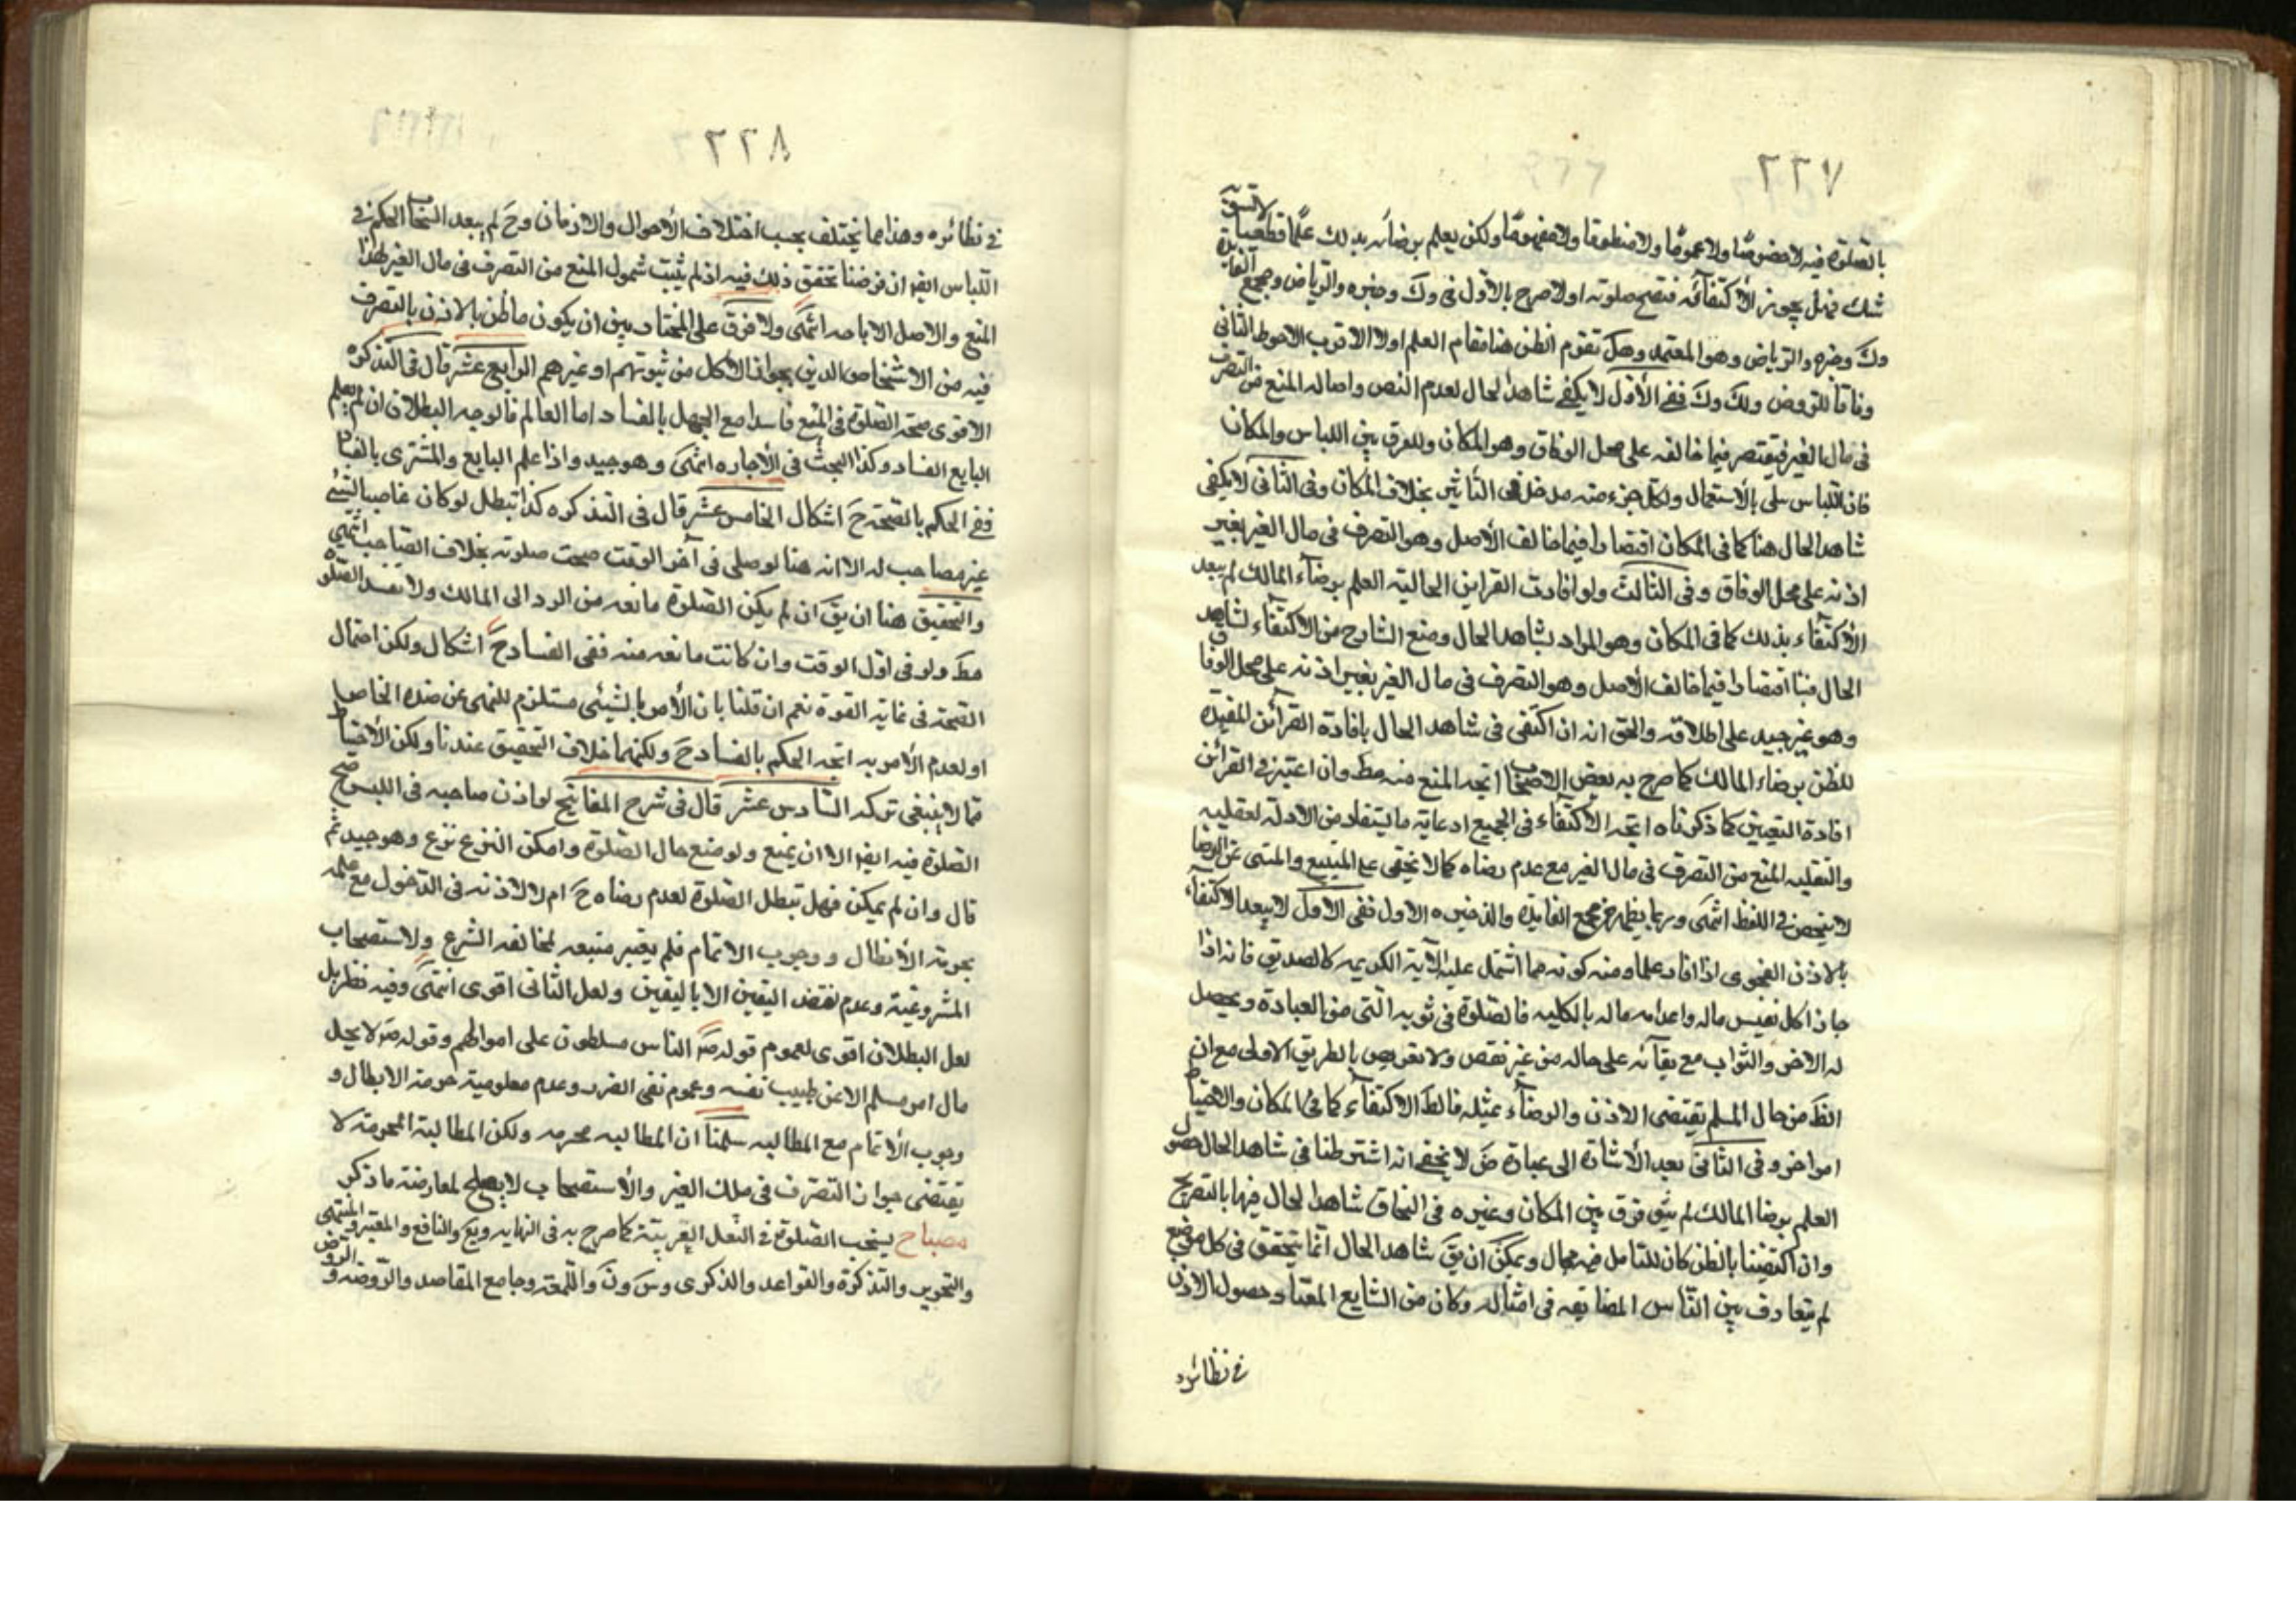 ٢٢٧
بالصلوة فيه لا خصوصًا ولا عمومًا ولا منطوقا ولا مفهومًا ولكن يعلم برضائه بذلك علمًا قطعيا لا يشوبه
شك فهل يجوز الاكتفاء به فتصح صلوته اولا صرح بالاول فى وك وضره والرياض ومجمع الفايدة
وك وضره والرياض وهو المعتمد وهل تقوم الظن هنا مقام العلم اولا الاقرب الاحوط الثانى
وفاقا للروض ولك وك ففى الأول لا يكفى شاهد الحال لعدم النص واصالة المنع من التصرف
فى مال الغير فيقتصر فيما خالفه على محل الوفاق وهو المكان وللفرق بين اللباس والمكان
فان اللباس يبلى بالاستعمال ولكل جزء منه مدخل فى التأثير بخلاف المكان وفى الثانى لا يكفى
شاهد الحال هنا كما فى المكان اقتصارا فيما خالف الأصل وهو التصرف فى مال الغير بغير
اذنه على محل الوفاق وفى الثالث ولو افادت القراين الحالية العلم برضاء المالك لم يبعد
الاكتفاء بذلك كما فى المكان وهو المراد بشاهد الحال ومنع الشارح من الاكتفاء بشاهد
الحال هنا اقتصارا فيما خالف الأصل وهو التصرف فى مال الغير بغير اذنه على محل الوفاق
وهو غير جيد على اطلاقه والحق انه ان اكتفى فى شاهد الحال بافادة القرائن المفيدة
للظن برضاء المالك كما صرح به بعض الاصحاب اتجه المنع منه مط وان اعتبر فى القرائن
افادة اليقين كما ذكرناه اتجه الاكتفاء فى الجميع اذ غاية ما يستفاد من الادلة العقلية
والنقلية المنع من التصرف فى مال الغير مع عدم رضاه كما لا يخفى على المتتبع والمنبى عن الرضا
لا ينحصر فى اللفظ انتهى وربما يظهر من مجمع الفايدة والذخيره الاول ففى الاول لا يبعد الاكتفاء
بالاذن الفحوى اذا افاد علما ومنه كونه مما اشتمل عليه الآية الكريمه كالصديق فانه اذا
جاز اكل نفيس ماله واعدامه ماله بالكلية فالصلوة فى ثوبه التى من العبادة ويحصل
له الاجر والثواب مع بقائه على حاله من غير نقص ولا تعويض بالطريق الاولى مع ان
الظ من حال المسلم يقتضى الاذن والرضاء بمثله فالظ الاكتفاء كما فى المكان والاحتياط
امر اخر وفى الثانى بعد الأشارة الى عبارة ض لا يخفى انه اشترطنا فى شاهد الحال حصول
العلم برضا المالك لم يبق فرق بين المكان وغيره فى التحاق شاهد الحال فيها بالتصريح
وان اكتفينا بالظن كان للتامل فيه مجال ويمكن ان يق شاهد الحال انما يتحقق فى كل موضع
لم يتعارف بين الناس المضايقه فى امثاله وكان من الشايع المعتاد حصول الاذن
فى نظائره
٢٢٨
فى نظائره وهذا مما يختلف بحسب اختلاف الأحوال والازمان وح لم يبعد انسحاب الحكم فى
اللباس ايضا ان فرضنا تحقق ذلك فيه اذ لم يثبت شمول المنع من التصرف فى مال الغير لهذا
المنع والاصل الاباحه انتهى ولا فرق على المختار بين ان يكون ما ظن بالاذن بالتصرف
فيه من الاشخاص الذين يجوز الاكل من بيوتهم او غيرهم الرابع عشر قال فى التذكره
الاقوى صحة الصلوة فى المبيع فاسدا مع الجهل بالفساد اما العالم فالوجه البطلان ان لم يعلم
البايع الفساد وكذا البحث فى الأجاره انتهى وهو جيد واذا علم البايع والمشترى بالفساد
ففى الحكم بالصحة ح اشكال الخامس عشر قال فى التذكره كذا تبطل لو كان غاصبا لشئ
غير مصاحب له الا انه هنا لو صلى فى آخر الوقت صحت صلوته بخلاف المصاحب انتهى
والتحقيق هنا ان يق ان لم يكن الصلوة مانعه من الرد الى المالك ولا تفسد الصلوة
مط ولو فى اول الوقت وان كانت مانعه منه ففى الفساد ح اشكال ولكن احتمال
الصحة فى غاية القوة نعم ان قلنا بان الأمر بالشيئ مستلزم للنهى عن ضده الخاص
او لعدم الأمر به اتجه الحكم بالفساد ح ولكنهما خلاف التحقيق عندنا ولكن الأحتياط
مما لا ينبغى تركه السادس عشر قال فى شرح المفاتيح لو اذن صاحبه فى اللبس صح
الصلوة فيه ايضا الا ان يمنع ولو منع حال الصلوة وامكن النزع نزع وهو جيد ثم
قال وان لم يمكن فهل تبطل الصلوة لعدم رضاه ح ام لا لاذنه فى الدخول مع علمه
بحرمة الأبطال ووجوب الاتمام فلم يعتبر منعه لمخالفه الشرع ولاستصحاب
المشروعية وعدم نقض اليقين الا باليقين ولعل الثانى اقوى انتهى وفيه نظر بل
لعل البطلان اقوى لعموم قوله ص الناس مسلطون على اموالهم وقوله ص لا يحل
مال امرء مسلم الا عن طيب نفسه وعموم نفى الضرر وعدم معلومية حرمة الابطال و
وجوب الأتمام مع المطالبه سلمنا ان المطالبه محرمه ولكن المطالبة المحرمة لا
يقتضى جواز التصرف فى ملك الغير والأستصحاب لا يصلح لمعارضة ما ذكر
مصباح يستحب الصلوة فى النعل العربية كما صرح به فى النهايه ويع والنافع والمعتبر والمنتهى
والتحرير والتذكرة والقواعد والذكرى وس ون واللمعة وجامع المقاصد والروضه والروض و